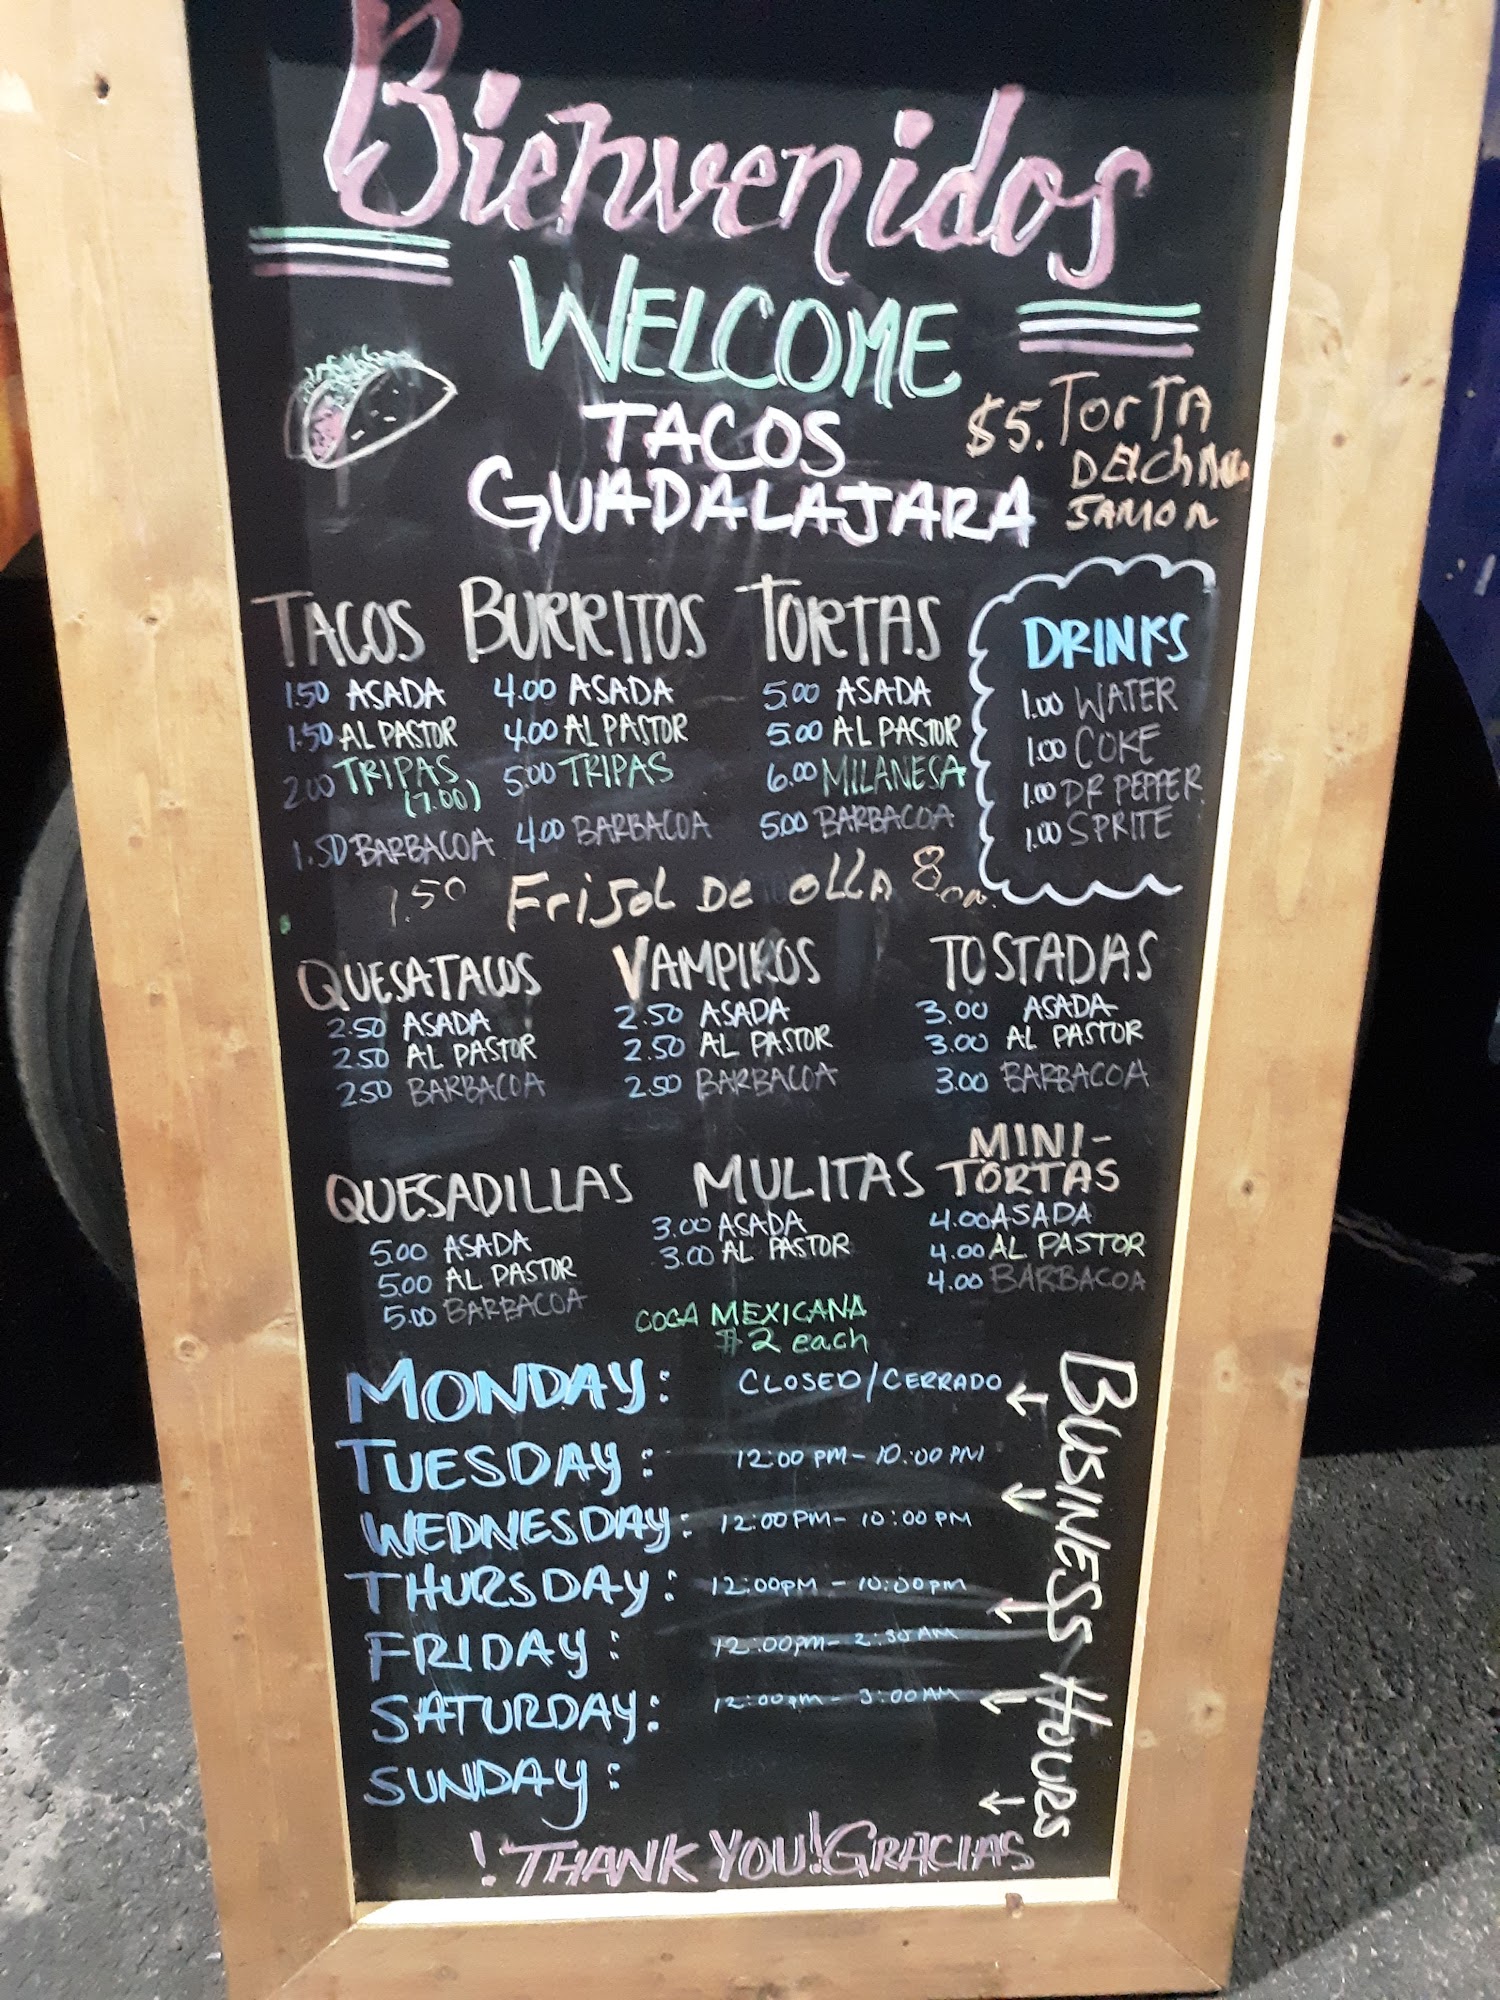 Bienvenidos
WELCOME
TACOS
GUADALAJARA
$5. TORTA
JAMON
TACOS
1.50 ASADA
1.50 AL PASTOR
2.00 TRIPAS
(7.00)
1.50 BARBACOA
1.50
BURRITOS
4.00 ASADA
4.00 AL PASTOR
5.00 TRIPAS
4.00 BARBACOA
TORTAS
5.00 ASADA
5.00 AL PASTOR
6.00 MILANESA
5.00 BARBACOA
DRINKS
1.00 WATER
1.00 COKE
1.00 DR PEPPER
1.00 SPRITE
FriJol DE OLLA 8.00
QUESATACOS
2.50 ASADA
2.50 AL PASTOR
2.50 BARBACOA
VAMPIROS
2.50 ASADA
2.50 AL PASTOR
2.50 BARBACOA
TOSTADAS
3.00 ASADA
3.00 AL PASTOR
3.00 BARBACOA
QUESADILLAS
5.00 ASADA
5.00 AL PASTOR
5.00 BARBACOA
MULITAS
3.00 ASADA
3.00 AL PASTOR
MINI-
TORTAS
4.00 ASADA
4.00 AL PASTOR
4.00 BARBACOA
COCA MEXICANA
$2 each
BUSINESS HOURS
MONDAY: CLOSED/CERRADO
TUESDAY: 12:00 PM - 10:00 PM
WEDNESDAY: 12:00 PM - 10:00 PM
THURSDAY: 12:00pm - 10:00pm
FRIDAY: 12:00pm - 2:30 AM
SATURDAY: 12:00pm - 3:00AM
SUNDAY:
!THANK YOU! GRACIAS